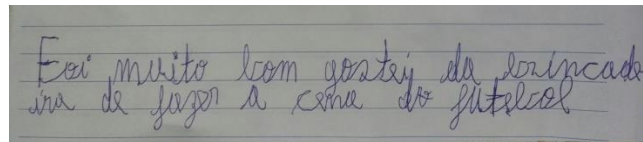 Foi muito bom gostei da brincade
ira de fazer a cena do futebol